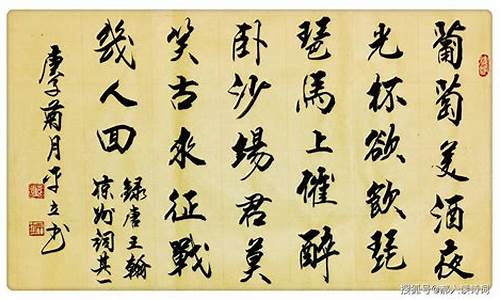 葡萄美酒夜
光杯欲飲琵
琶馬上催醉
卧沙場君莫
笑古來征戰
幾人回
錄唐王翰
涼州詞其一
庚子菊月立书
搜狐号@人读诗词